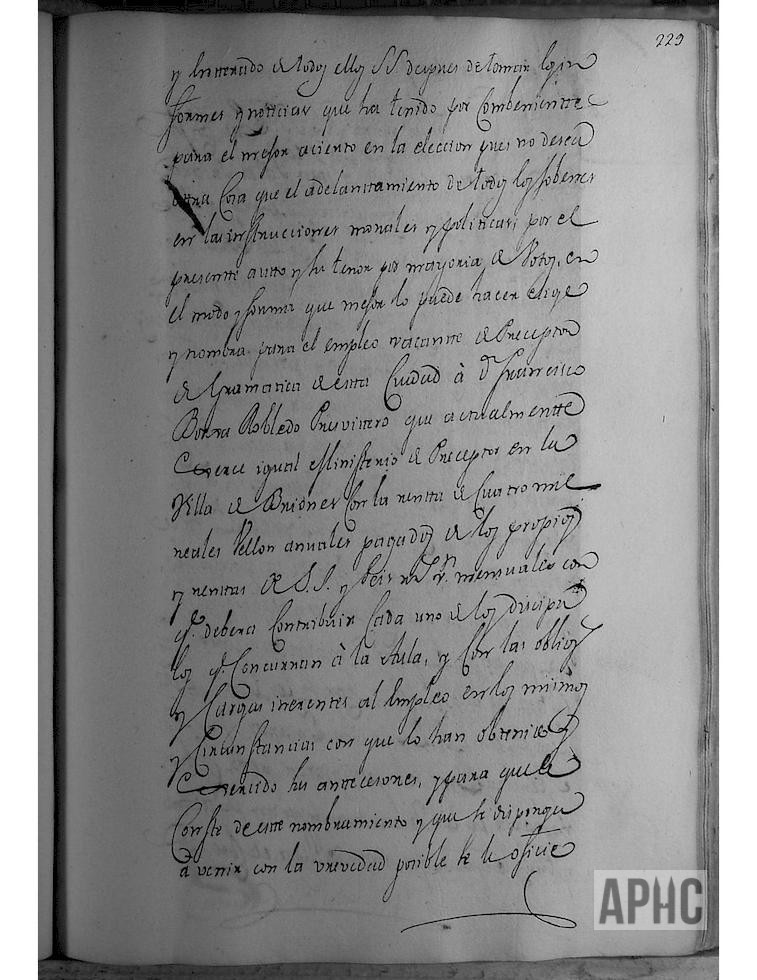 229
y enterado de todo ello SS. despues de tomar los in
formes y noticias que ha tenido por combenientte
para el mejor aciento en la eleccion pues no desea
ottra Cosa que el adelantamiento de todos los Jobenes
en las instrucciones morales y politicas, por el
presentte autto y su tenor por mayoria de Votos, en
el modo y forma que mejor lo puede hacer elige
y nombra para el empleo vacantte de Preceptor
de Gramatica de estta Ciudad à Dn Francisco
Borra Robledo Presvittero que actualmentte
Exerce igual Ministerio de Preceptor en la
Villa de Briones Con la rentta de Cuatro mil
reales Vellon anuales pagados de los propios
y renttas de S.S. y seis rs. vn. mensuales con
qe. debera Contribuir Cada uno de los discipu
los qe. Concurran à la Aula, y Con las obligs
y Cargas inerentes al Empleo en los mismos
y Circunstancias con que lo han obtenido y
Exercido sus anttecesores, y para que le
Conste de este nombramiento y que se disponga
à venir con la vrevedad posible se le oficie
APHC